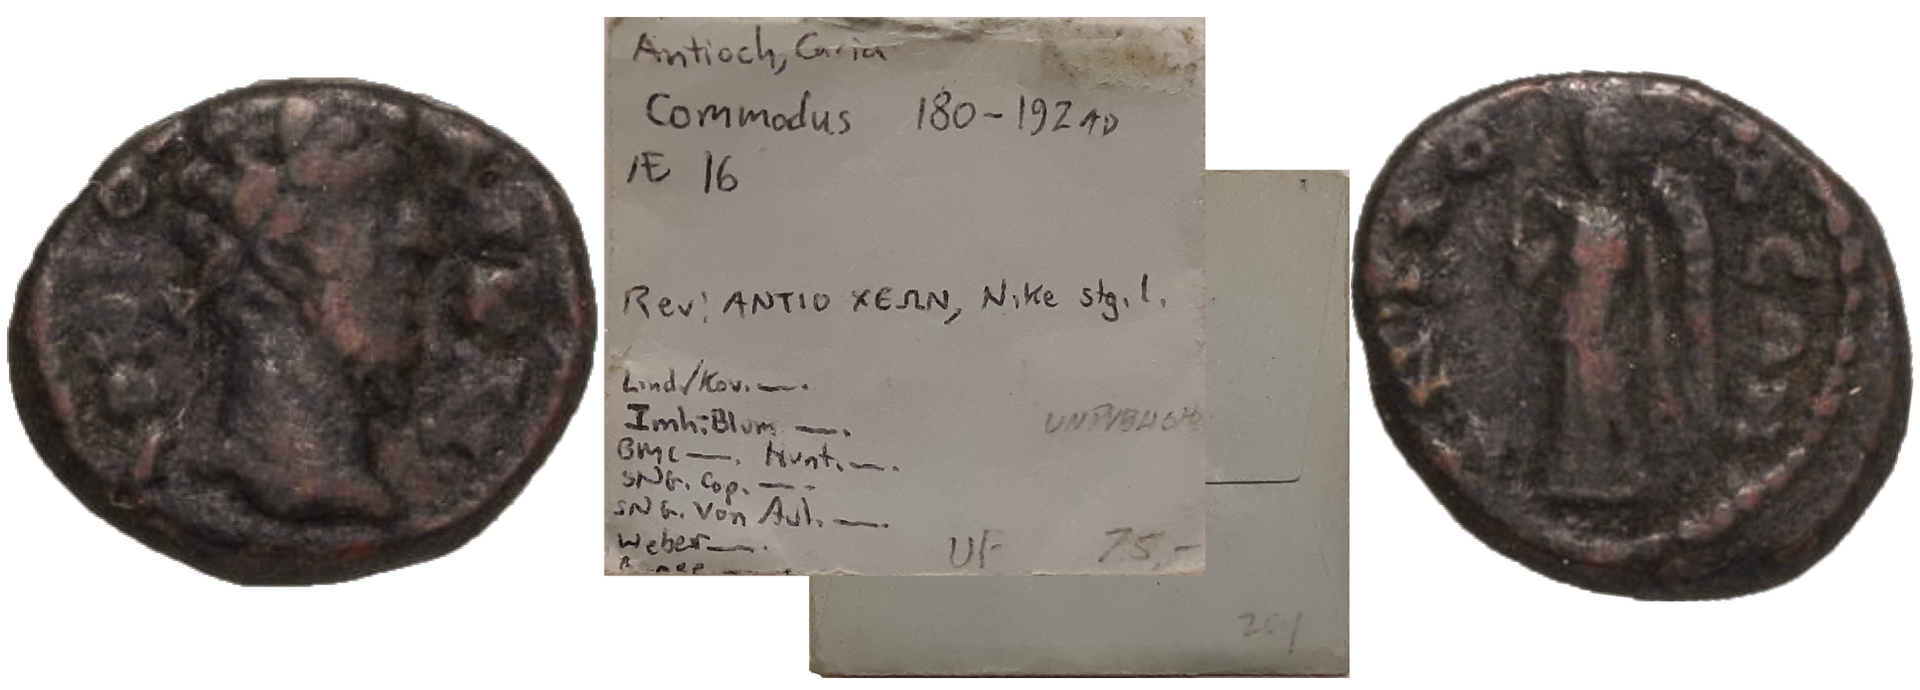 Antioch, Caria
Commodus 180-192 AD
Æ 16
Rev: ANTIO XEΩN, Nike stg. l.
Lind/Kov. —.
Imh-Blum —.
UNPUBLISH
BMC —. Hunt. —.
SNG. Cop. —.
SNG. Von Aul. —.
Weber —.
UF 75,-